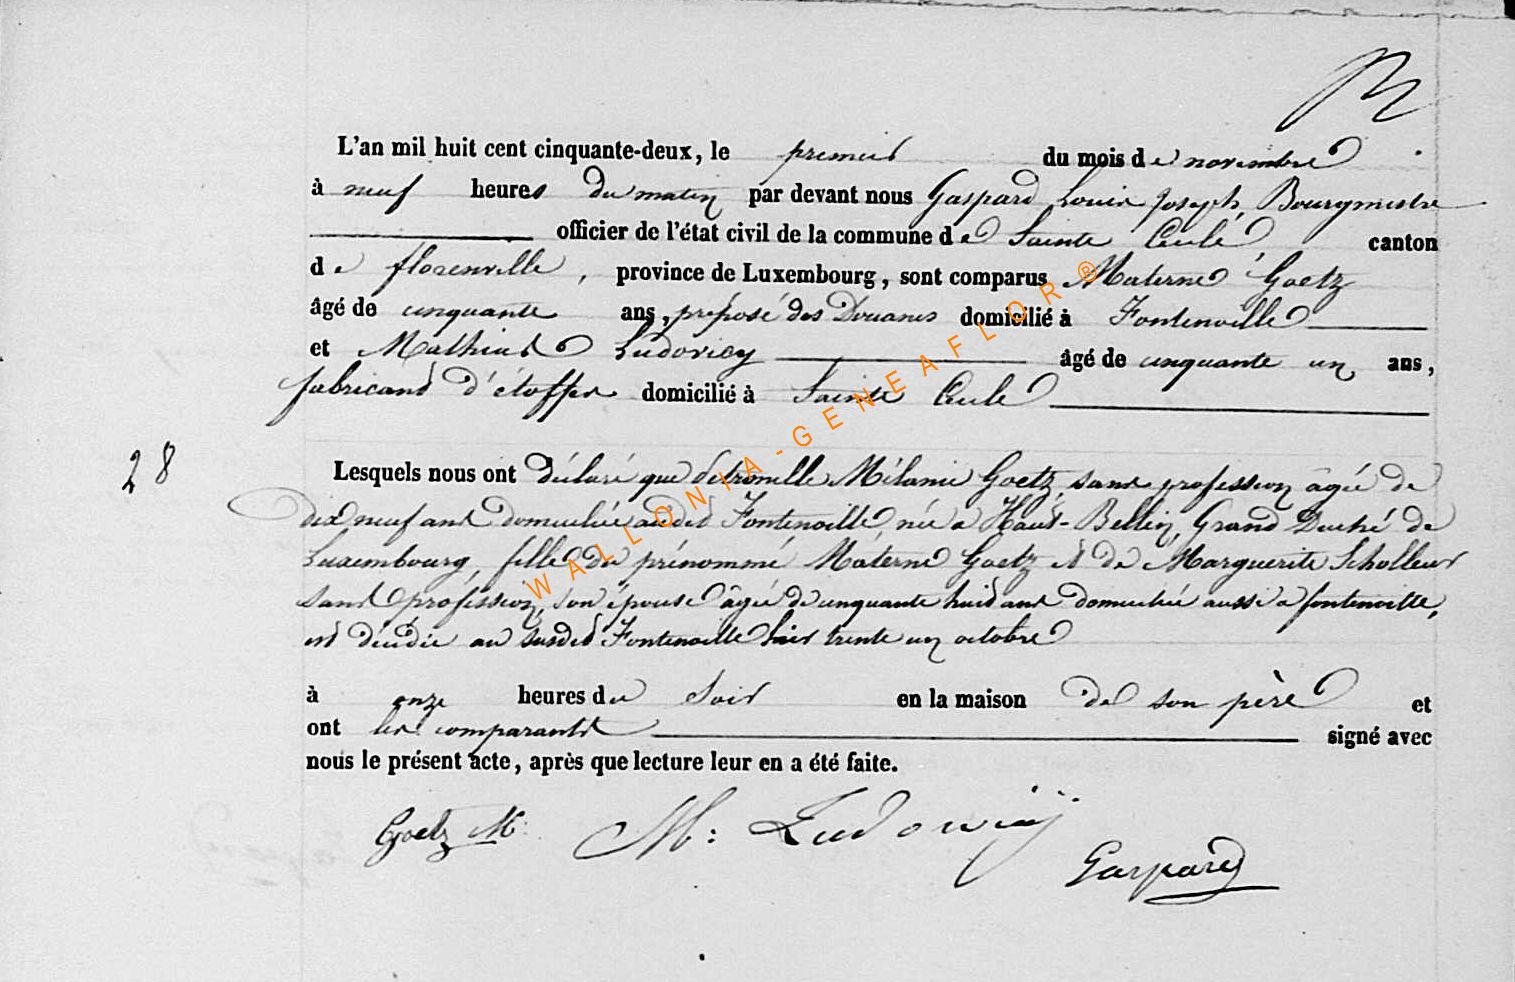 L'an mil huit cent cinquante-deux, le premier du mois de novembre
à neuf heures du matin par devant nous Gaspard Louis Joseph, Bourgmestre
officier de l'état civil de la commune de Sainte Cecile canton
de florenville, province de Luxembourg, sont comparus Materne Goetz
âgé de cinquante ans, préposé des Douanes domicilié à Fontenoille
et Mathieu Ludovicy âgé de cinquante un ans,
fabricand d'étoffes domicilié à Sainte Cecile
28
Lesquels nous ont déclaré que Mélanie Goetz, sans profession âgée de
dix neuf ans domiciliée audit Fontenoille née a Haut-Bellin, Grand Duché de
Luxembourg, fille du prénommé Materne Goetz et de Marguerite Scholleur
sans profession, son épouse âgée de cinquante huit ans domiciliée aussi a fontenoille,
est décédée au susdit Fontenoille hier trente un octobre
à onze heures du soir en la maison de son père et
ont les comparants signé avec
nous le présent acte, après que lecture leur en a été faite.
Goetz M: M: Ludowicÿ Gaspard
WALLONIA-GENEAFLOR®